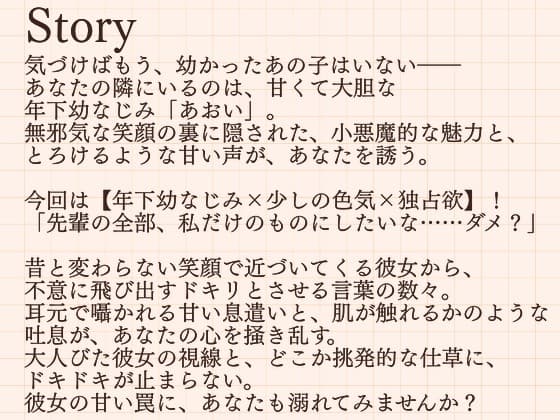 Story
気づけばもう、幼かったあの子はいない――
あなたの隣にいるのは、甘くて大胆な
年下幼なじみ「あおい」。
無邪気な笑顔の裏に隠された、小悪魔的な魅力と、
とろけるような甘い声が、あなたを誘う。
今回は【年下幼なじみ×少しの色気×独占欲】！
「先輩の全部、私だけのものにしたいな……ダメ？」
昔と変わらない笑顔で近づいてくる彼女から、
不意に飛び出すドキリとさせる言葉の数々。
耳元で囁かれる甘い息遣いと、肌が触れるかのような
吐息が、あなたの心を掻き乱す。
大人びた彼女の視線と、どこか挑発的な仕草に、
ドキドキが止まらない。
彼女の甘い罠に、あなたも溺れてみませんか？